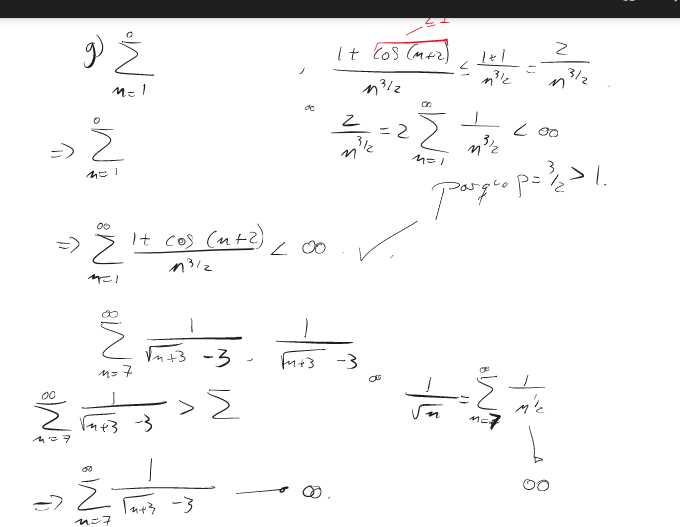 g) ∑_{n=1}^{0} , (1 + cos(n+2))/n^{3/2} ≤ (1+1)/n^{3/2} = 2/n^{3/2}
≤ 1
=> ∑_{n=1}^{0} ∞ 2/n^{3/2} = 2 ∑_{n=1}^{∞} 1/n^{3/2} < ∞
porque p = 3/2 > 1.
=> ∑_{n=1}^{∞} (1 + cos(n+2))/n^{3/2} < ∞ . ✓ .
∑_{n=7}^{∞} 1/(√(n+3) - 3) . 1/(√(n+3) - 3)
∑_{n=7}^{∞} 1/(√(n+3) - 3) > ∑ ∞ 1/√n = ∑_{n=7}^{∞} 1/n^{1/2}
∞
=> ∑_{n=7}^{∞} 1/(√(n+3) - 3) → ∞.